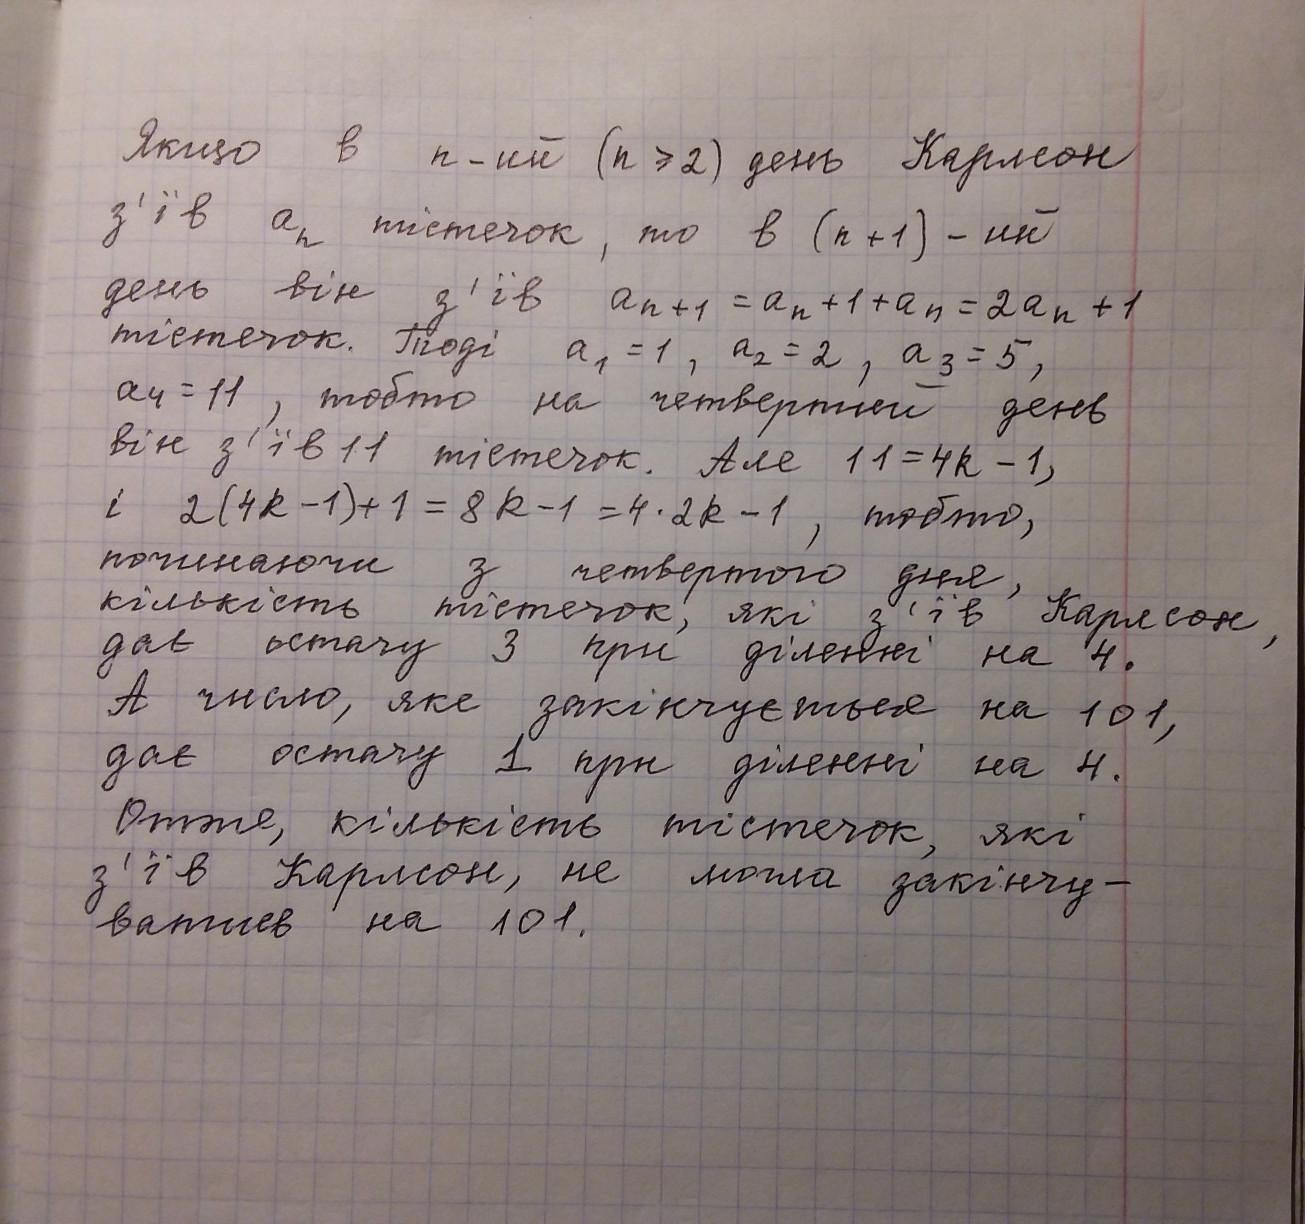 Якщо в n-ий (n ⩾ 2) день Карлсон
з'їв aₙ тістечок, то в (n+1)-ий
день він з'їв aₙ₊₁ = aₙ + 1 + aₙ = 2aₙ + 1
тістечок. Тоді a₁ = 1, a₂ = 2, a₃ = 5,
a₄ = 11, тобто на четвертий день
він з'їв 11 тістечок. Але 11 = 4k - 1,
і 2(4k - 1) + 1 = 8k - 1 = 4·2k - 1, тобто,
починаючи з четвертого дня,
кількість тістечок, які з'їв Карлсон,
дає остачу 3 при діленні на 4.
А число, яке закінчується на 101,
дає остачу 1 при діленні на 4.
Отже, кількість тістечок, які
з'їв Карлсон, не могла закінчу-
ватись на 101.